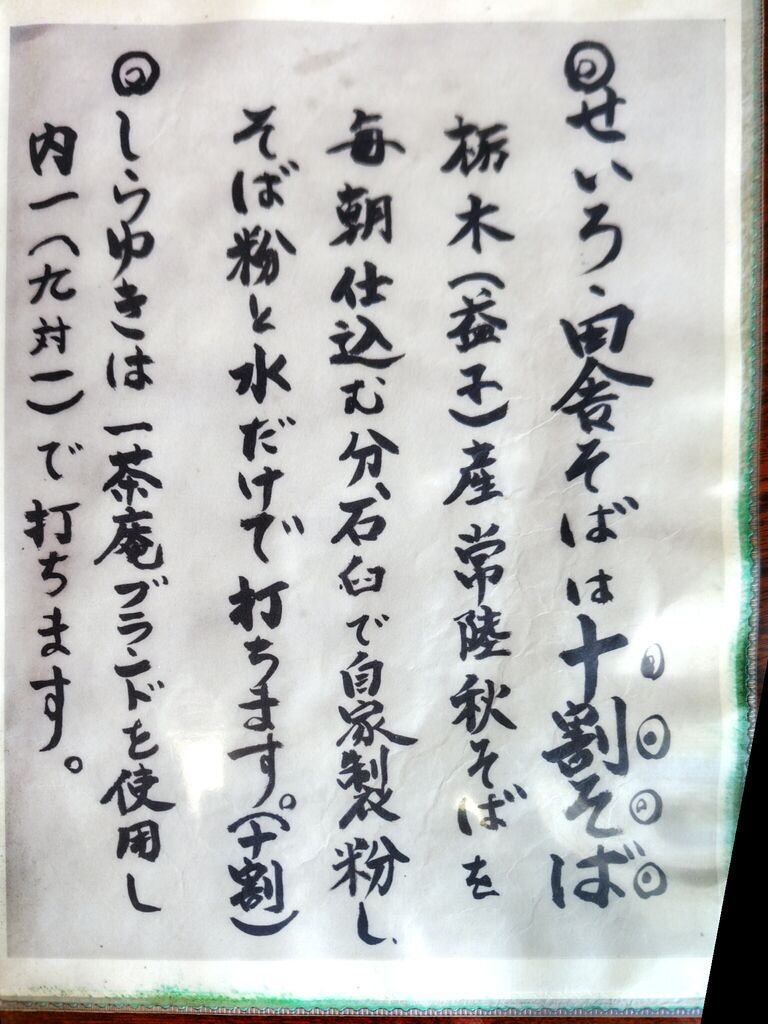 ◎せいろ、田舎そばは十割そば
栃木(益子)産常陸秋そばを
毎朝仕込む分、石臼で自家製粉し、
そば粉と水だけで打ちます。(十割)
◎しらゆきは一茶庵ブランドを使用し
内一(九対一)で打ちます。